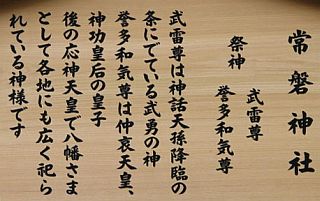 常磐神社
武雷尊
祭神
誉多和気尊
武雷尊は神話天孫降臨の
条にでている武勇の神
誉多和気尊は仲哀天皇、
神功皇后の皇子
後の応神天皇で八幡さま
として各地にも広く祀ら
れている神様です